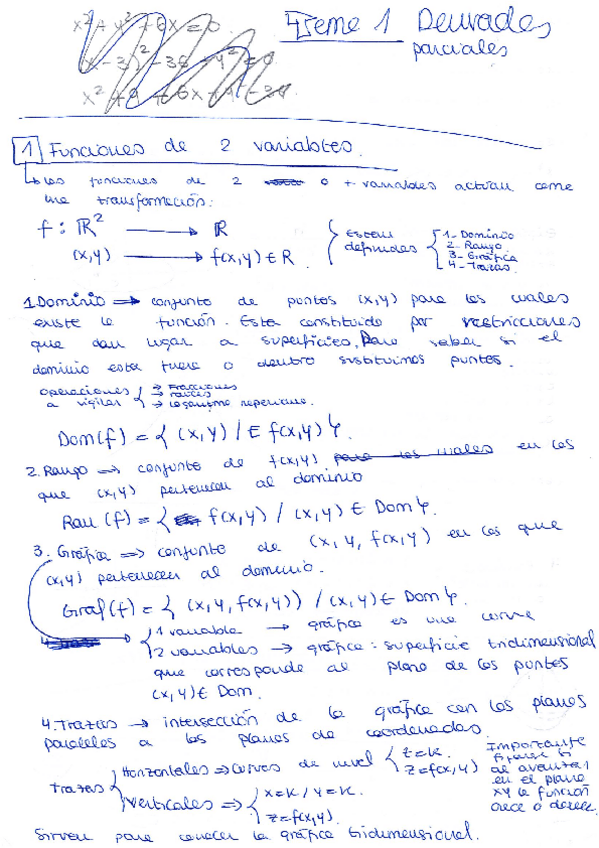 x² + y² + 6x = 0
(x-3)² - 36 + y² = 0
x² + 9 + 6x + y² = 36
Tema 1 Derivadas
parciales
1 Funciones de 2 variables.
↳ las funciones de 2 o + variables actúan como
una transformación:
f : ℝ² ⟶ ℝ
(x,y) ⟶ f(x,y) ∈ R.
Están
definidas
1- Dominio
2- Rango
3- Gráfica
4- Trazas
1. Dominio ⟹ conjunto de puntos (x,y) para los cuales
existe la función. Esta constituido por restricciones
que dan lugar a superficies. Para saber si el
dominio esta fuera o dentro sustituimos puntos.
operaciones
a vigilar
→ Fracciones
→ raíces
→ logaritmo neperiano.
Dom(f) = { (x,y) / E f(x,y) }.
2. Rango ⟹ conjunto de f(x,y) para los cuales en los
que (x,y) pertenecen al dominio
Ran (f) = { f(x,y) / (x,y) ∈ Dom }.
3. Gráfica ⟹ conjunto de (x, y, f(x,y)) en los que
(x,y) pertenecen al dominio.
Graf(f) = { (x,y, f(x,y)) / (x,y) ∈ Dom }.
1 variable → gráfica es una curva
2 variables → gráfica: superficie tridimensional
que corresponde al plano de los puntos
(x,y) ∈ Dom.
4. Trazas → intersección de la gráfica con los planos
paralelos a los planos de coordenadas.
Trazas
Horizontales ⟹ curvas de nivel
z=k.
z=f(x,y)
Verticales ⟹
x=k / y=k.
z=f(x,y).
Importante
al avanzar
en el plano
XY la función
crece o decrece.
Sirven para conocer la gráfica tridimensional.